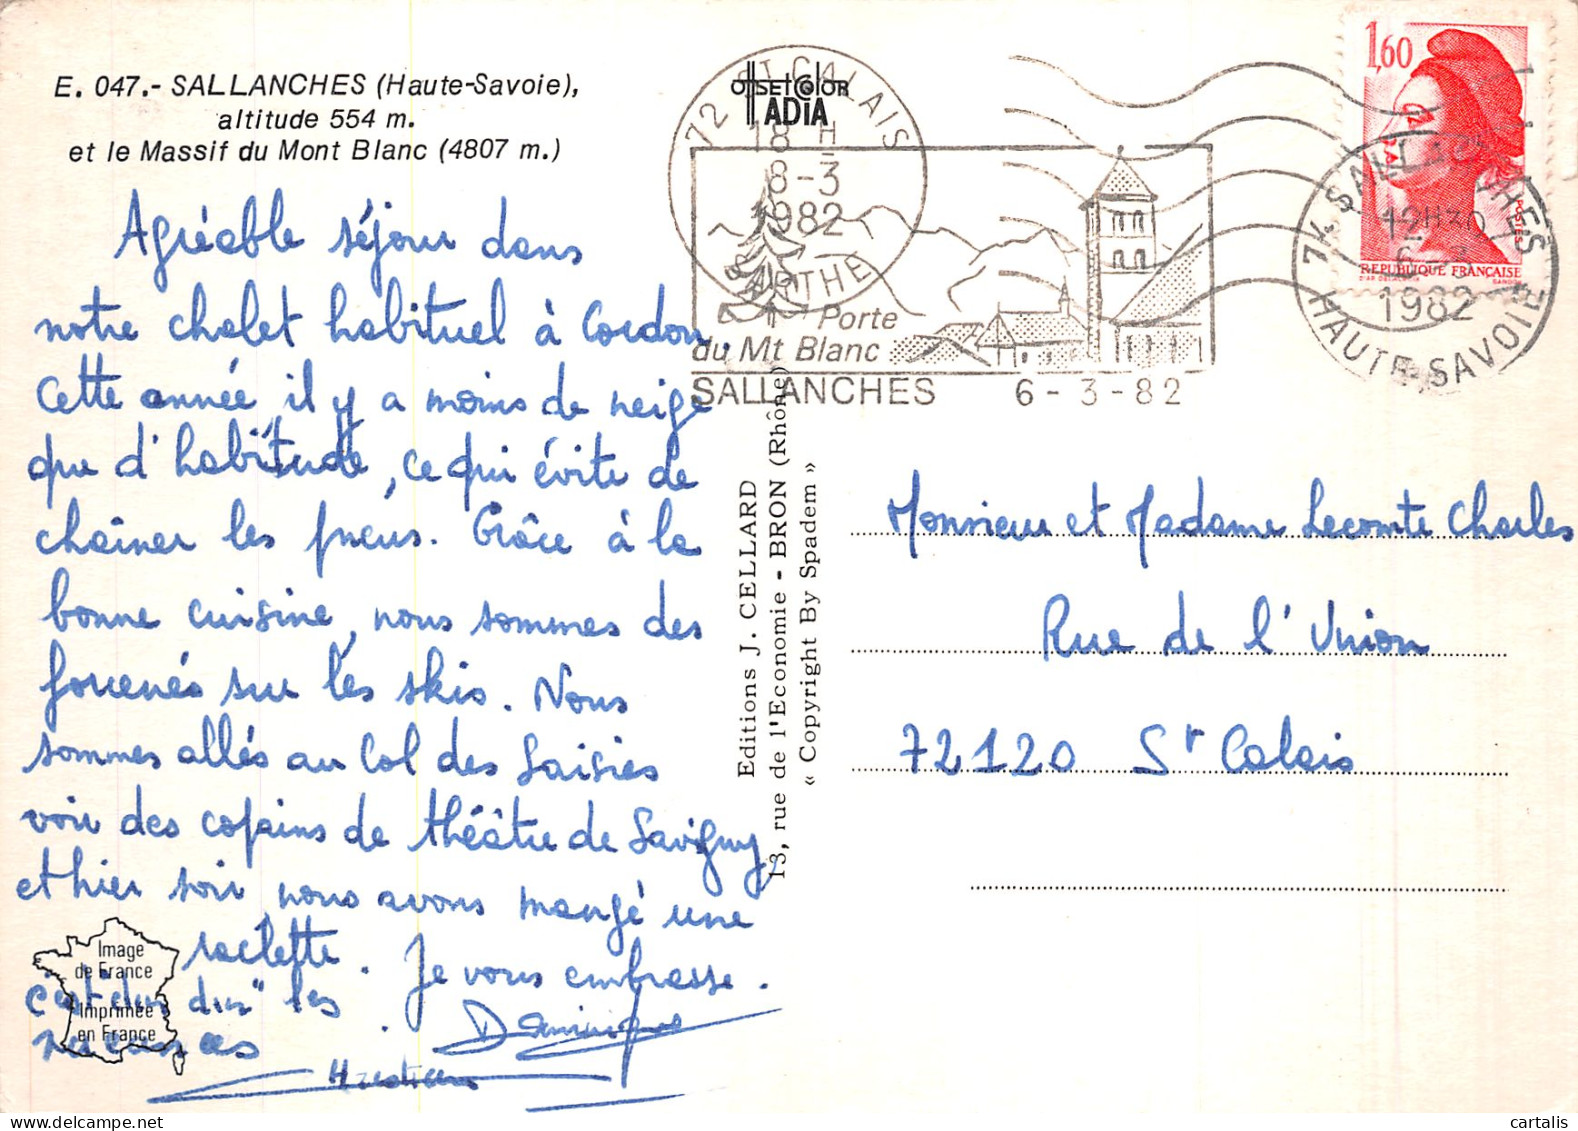 E. 047.- SALLANCHES (Haute-Savoie),
altitude 554 m.
et le Massif du Mont Blanc (4807 m.)
Agréable séjour dans
notre chalet habituel à Cordon.
Cette année, il y a moins de neige
que d'habitude, ce qui évite de
chaîner les pneus. Grâce à la
bonne cuisine, nous sommes des
sur les skis. Nous
sommes allés au Col des Saisies
voir des copains de théâtre de Savigny
et hier soir nous avons mangé une
raclette. Je vous embrasse.
c'est dur dur" les
vacances
Dominique
Image
de France
Imprimée
en France
Editions J. CELLARD
13, rue de l'Economie - BRON (Rhône)
« Copyright By Spadem »
OffsetColor
ADIA
72 ST CALAIS
18 H
8-3
1982
SARTHE
Porte
du Mt Blanc
SALLANCHES 6-3-82
1,60
POSTES
REPUBLIQUE FRANÇAISE
74 SALLANCHES
12H30
6-3
1982
HAUTE-SAVOIE
Monsieur et Madame Lecomte Charles
Rue de l'Union
72120 St Calais
cartalis